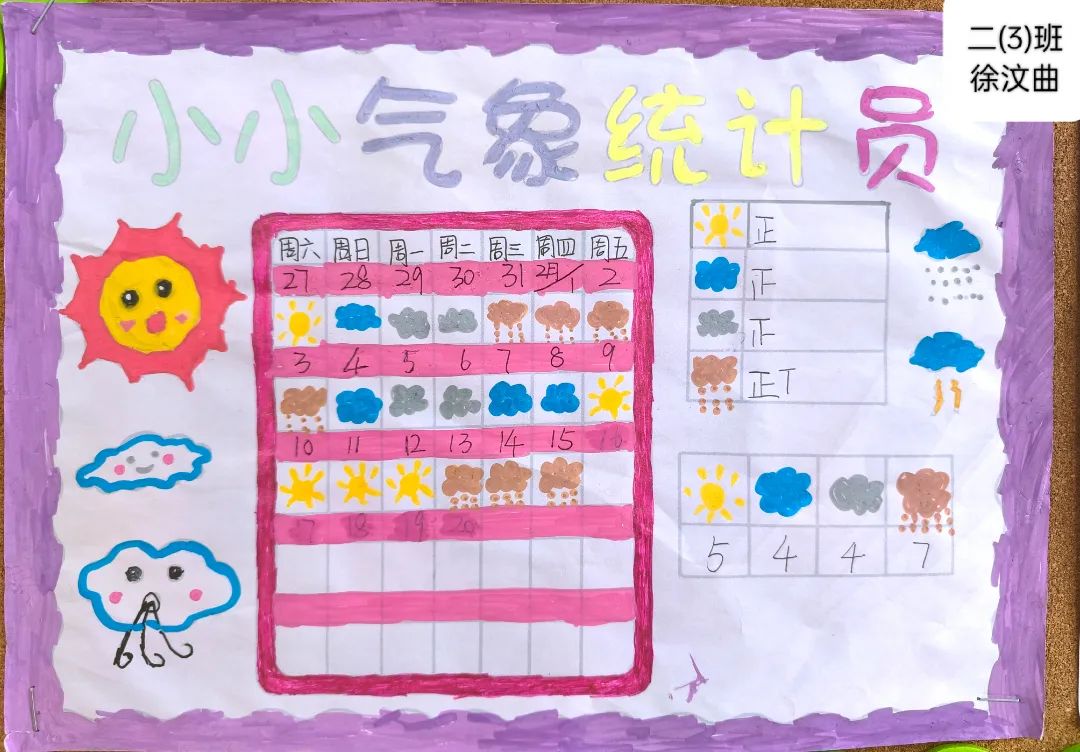 二(3)班
徐汶曲
小小气象统计员
周六 周日 周一 周二 周三 周四 周五
27 28 29 30 31 2月/1 2
3 4 5 6 7 8 9
10 11 12 13 14 15 16
17 18 19 20
正
正
正
正丅
5 4 4 7